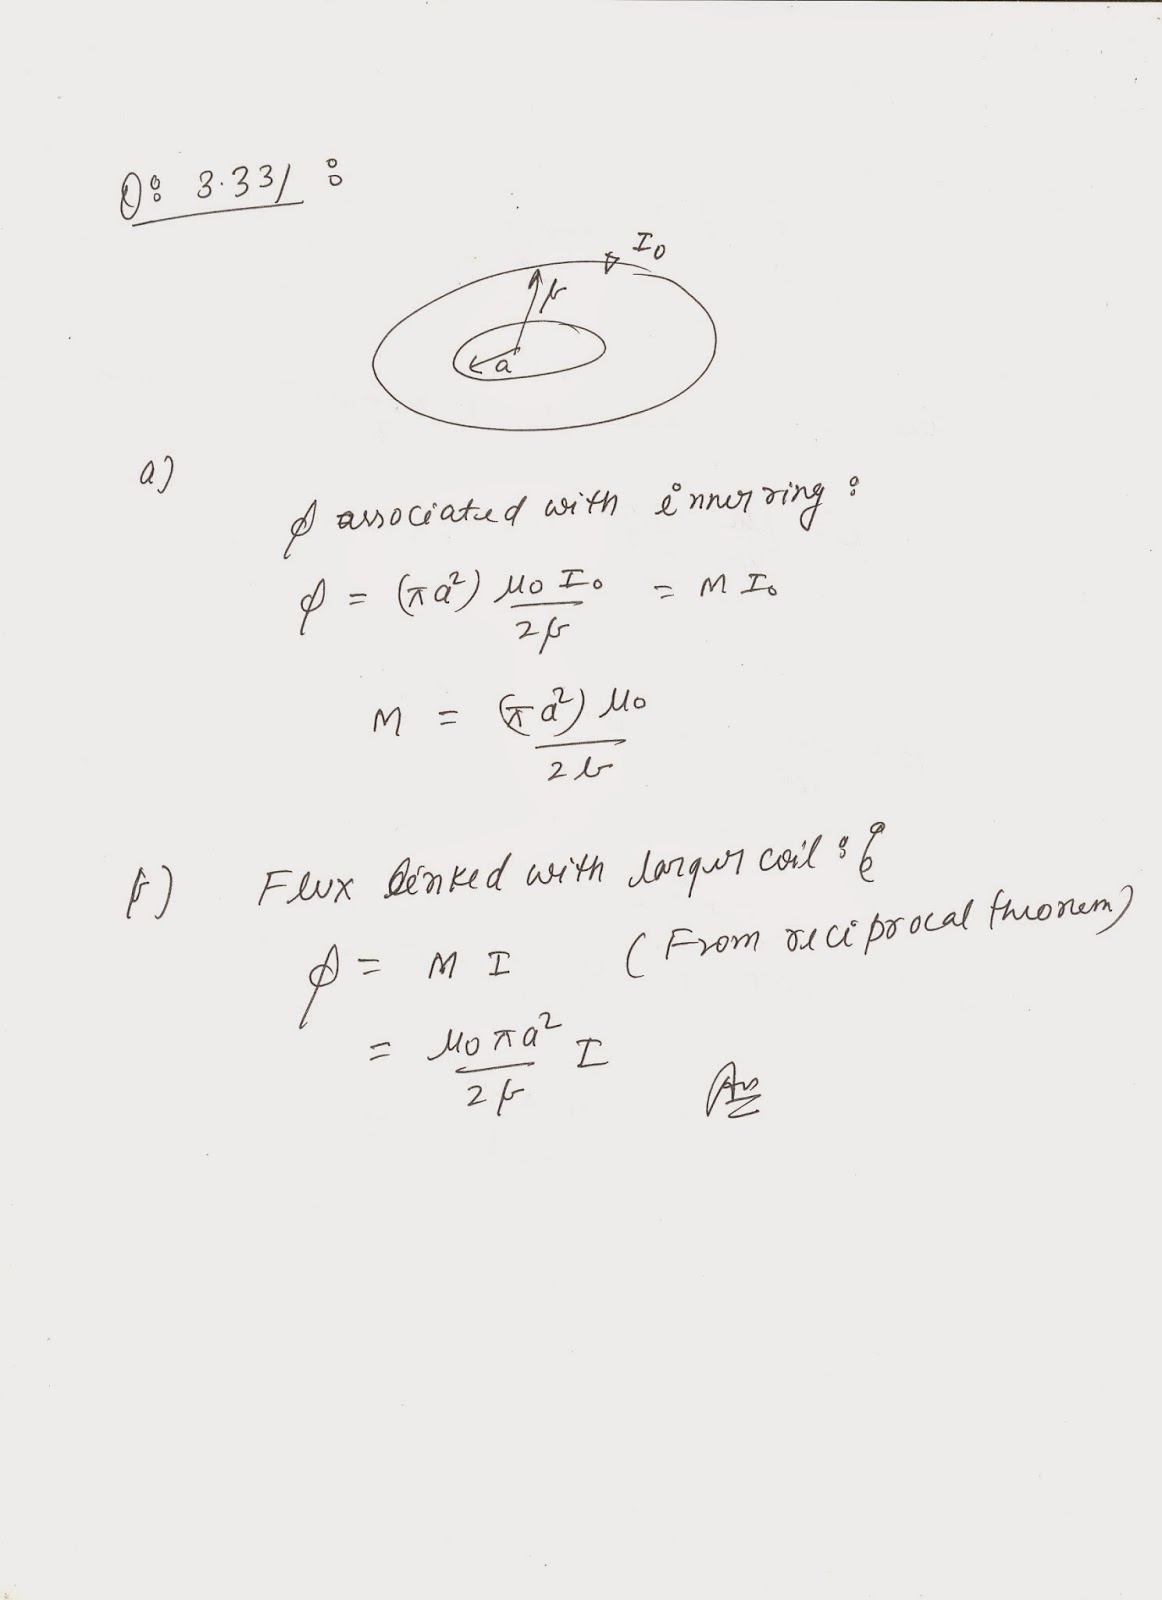 Q: 3.331 :
I₀
b
a
a)
ϕ associated with inner ring :
ϕ = (πa²) μ₀ I₀ / 2b = M I₀
M = (πa²) μ₀ / 2b
b) Flux linked with larger coil :
ϕ = M I (From reciprocal theorem)
= μ₀ π a² / 2b I
Ans